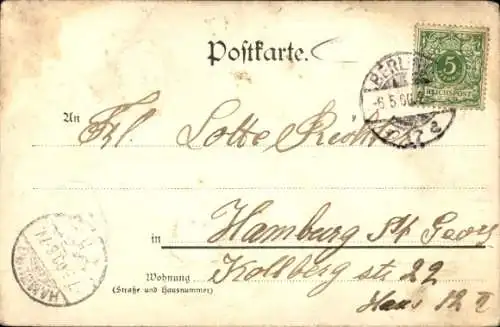 Postkarte.
5
REICHSPOST
BERLIN
An Frl. Lotte
in Hamburg St. Georg
Wohnung
(Straße und Hausnummer)
Kollberg str 22
Haus 12
HAMBURG